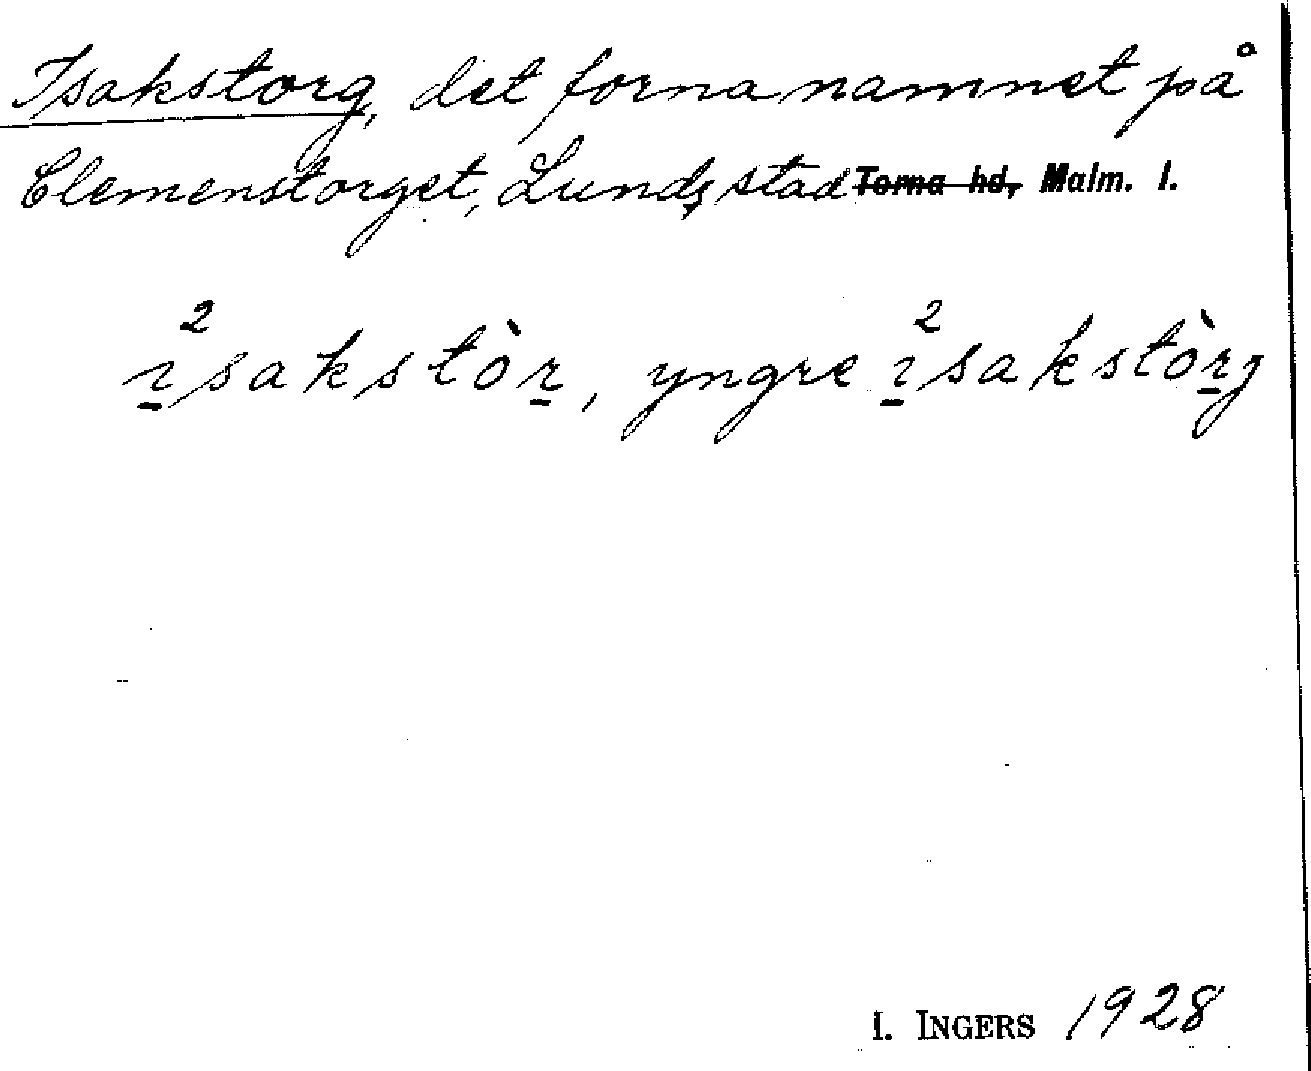 Isakstorg, det forna namnet på
Clemenstorget, Lunds stad Torna hd, Malm. l.
²ı̱sakstòṟ, yngre ²ı̱sakstòṟg
I. INGERS 1928